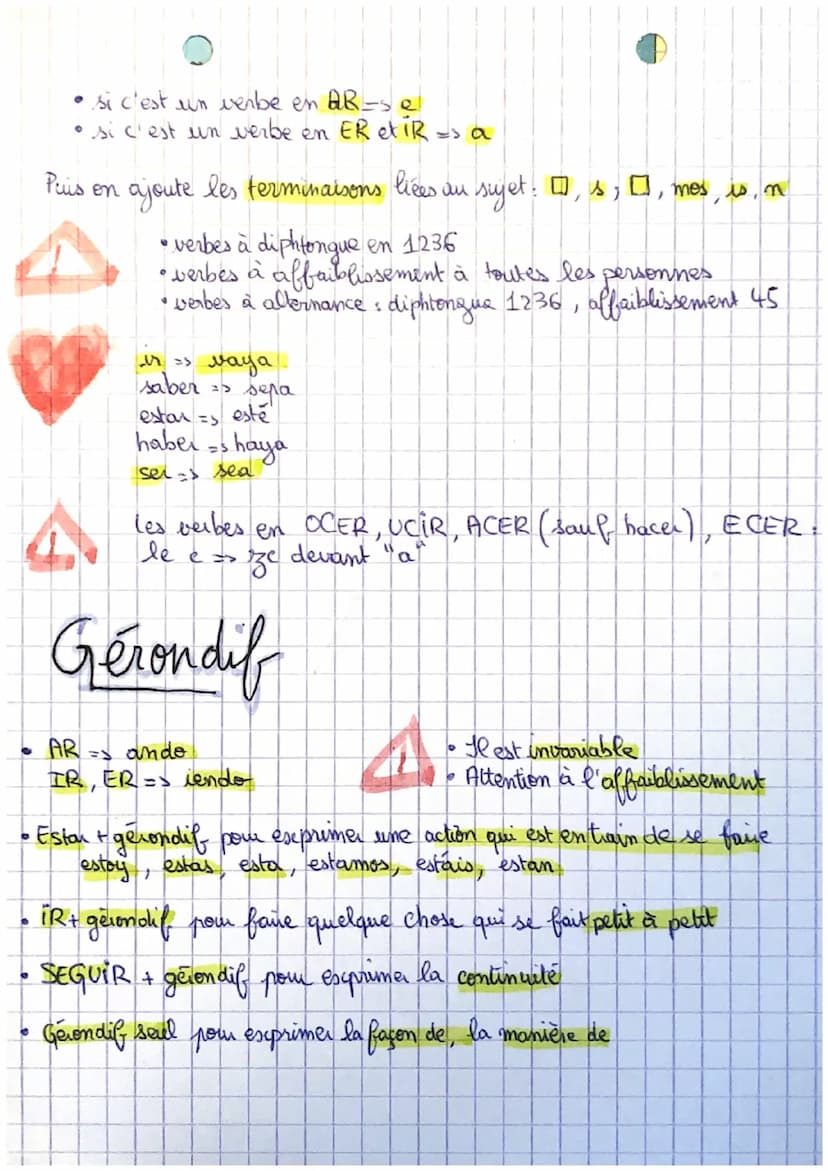 • si c'est un verbe en AR => e
• si c'est un verbe en ER et IR => a
Puis on ajoute les terminaisons liées au sujet : □, s ; □, mos, is, n
• verbes à diphtongue en 1236
• verbes à affaiblissement à toutes les personnes
• verbes à alternance : diphtongue 1236, affaiblissement 45
ir => vaya
saber => sepa
estar => esté
haber => haya
ser => sea
Les verbes en OCER, UCIR, ACER (sauf hacer), ECER :
le c => zc devant "a"
Gérondif
• AR => ando
IR, ER => iendo
! • Il est invariable
• Attention à l'affaiblissement
• Estar + gérondif pour exprimer une action qui est en train de se faire
estoy, estas, esta, estamos, estáis, estan
• IR + gérondif pour faire quelque chose qui se fait petit à petit
• SEGUIR + gérondif pour exprimer la continuité
• Gérondif seul pour exprimer la façon de, la manière de